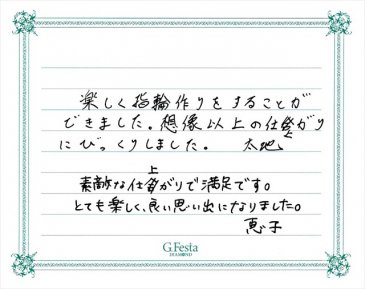 楽しく指輪作りをすることが
できました。想像以上の仕登がり
にびっくりしました。 太地
上
素敵な仕登がりで満足です。
とても楽しく、良い思い出になりました。
恵子
G.Festa
DIAMOND